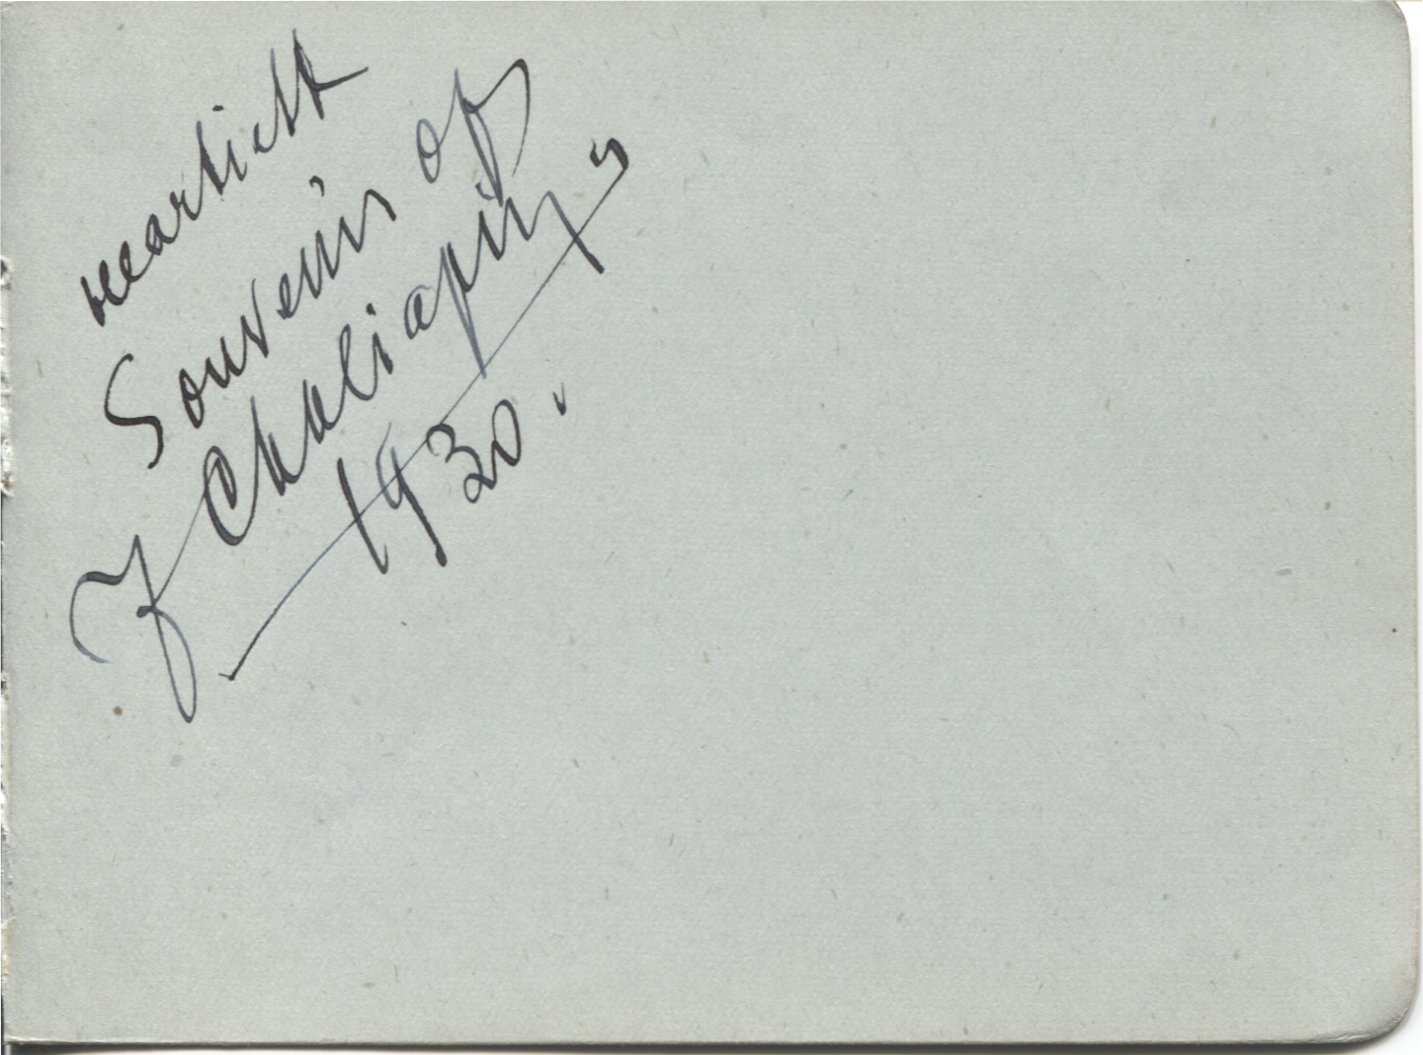 heartiest
Souvenir of
F Chaliapin
1930.